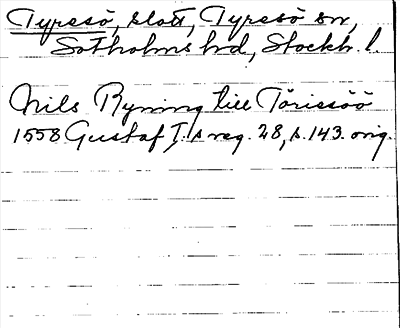 Tyresö, slott, Tyresö sn,
Sotholms hd, Stockh. l.
Nils Ryning till Törissöö
1558 Gustaf I:s reg. 28, s. 143. orig.